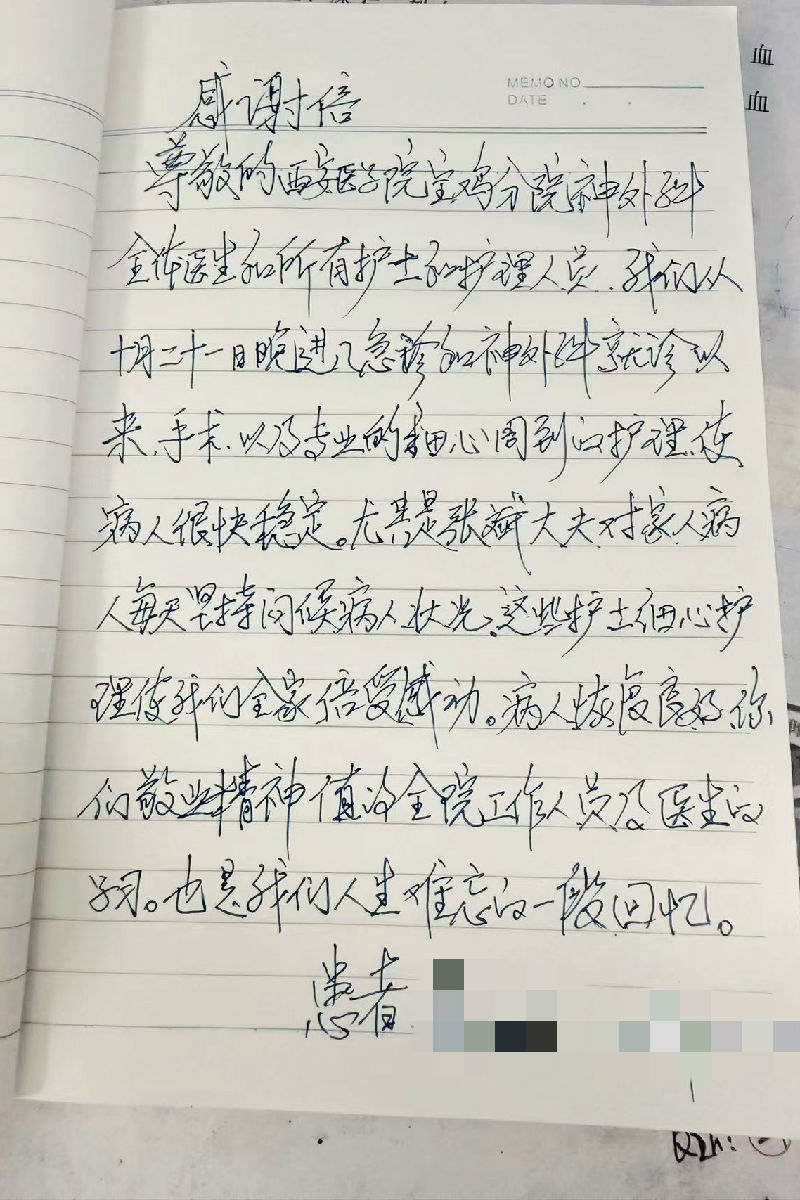 血
血
MEMO NO.
DATE . .
感谢信
尊敬的西安医学院宝鸡分院神外科
全体医生和所有护士和护理人员.我们从
十月二十一日晚进入急诊和神外科就诊以
来、手术、以及专业的细心周到的护理、使
病人很快稳定。尤其是张斌大夫对家人病
人每天坚持问候病人状况、这些护士细心护
理使我们全家倍受感动。病人恢复良好你
们敬业精神值的全院工作人员及医生的
学习。也是我们人生难忘的一段回忆。
患者